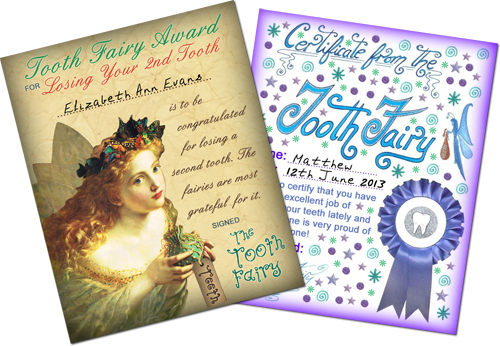 Tooth Fairy Award
FOR Losing Your 2nd Tooth
Elizabeth Ann Evans
is to be
congratulated
for losing a
second tooth. The
fairies are most
grateful for it.
SIGNED
The
Tooth
Fairy
Teeth
Certificate from the
Tooth Fairy
me: Matthew
12th June 2013
o certify that you have
excellent job of
your teeth lately and
one is very proud of
one!
d: